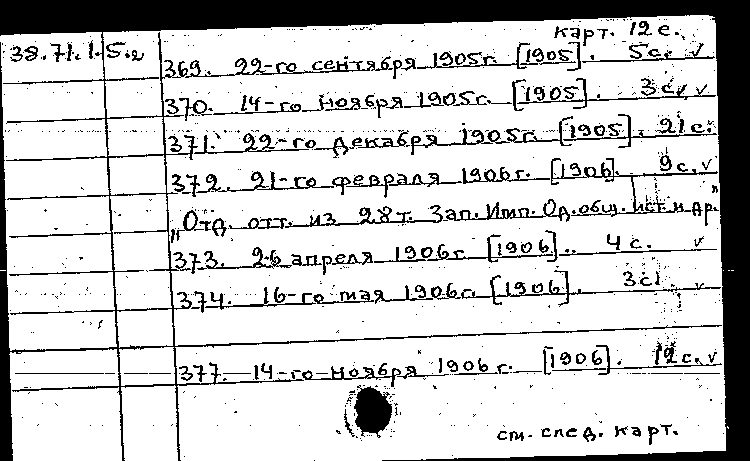 карт. 12 с.
38.71.1.5.2
369. 22-го сентября 1905г. [1905]. 5с. v
370. 14-го ноября 1905г. [1905]. 3с. v
371. 22-го декабря 1905г. [1905]. 21с.
372. 21-го февраля 1906г. [1906]. 9с. v
"Отд. отт. из 28т. Зап. Имп. Од. общ. ист. и др."
373. 26 апреля 1906г. [1906].. 4с. v
374. 16-го мая 1906г. [1906]. 3с. v
377. 14-го ноября 1906г. [1906]. 12с. v
см. след. карт.